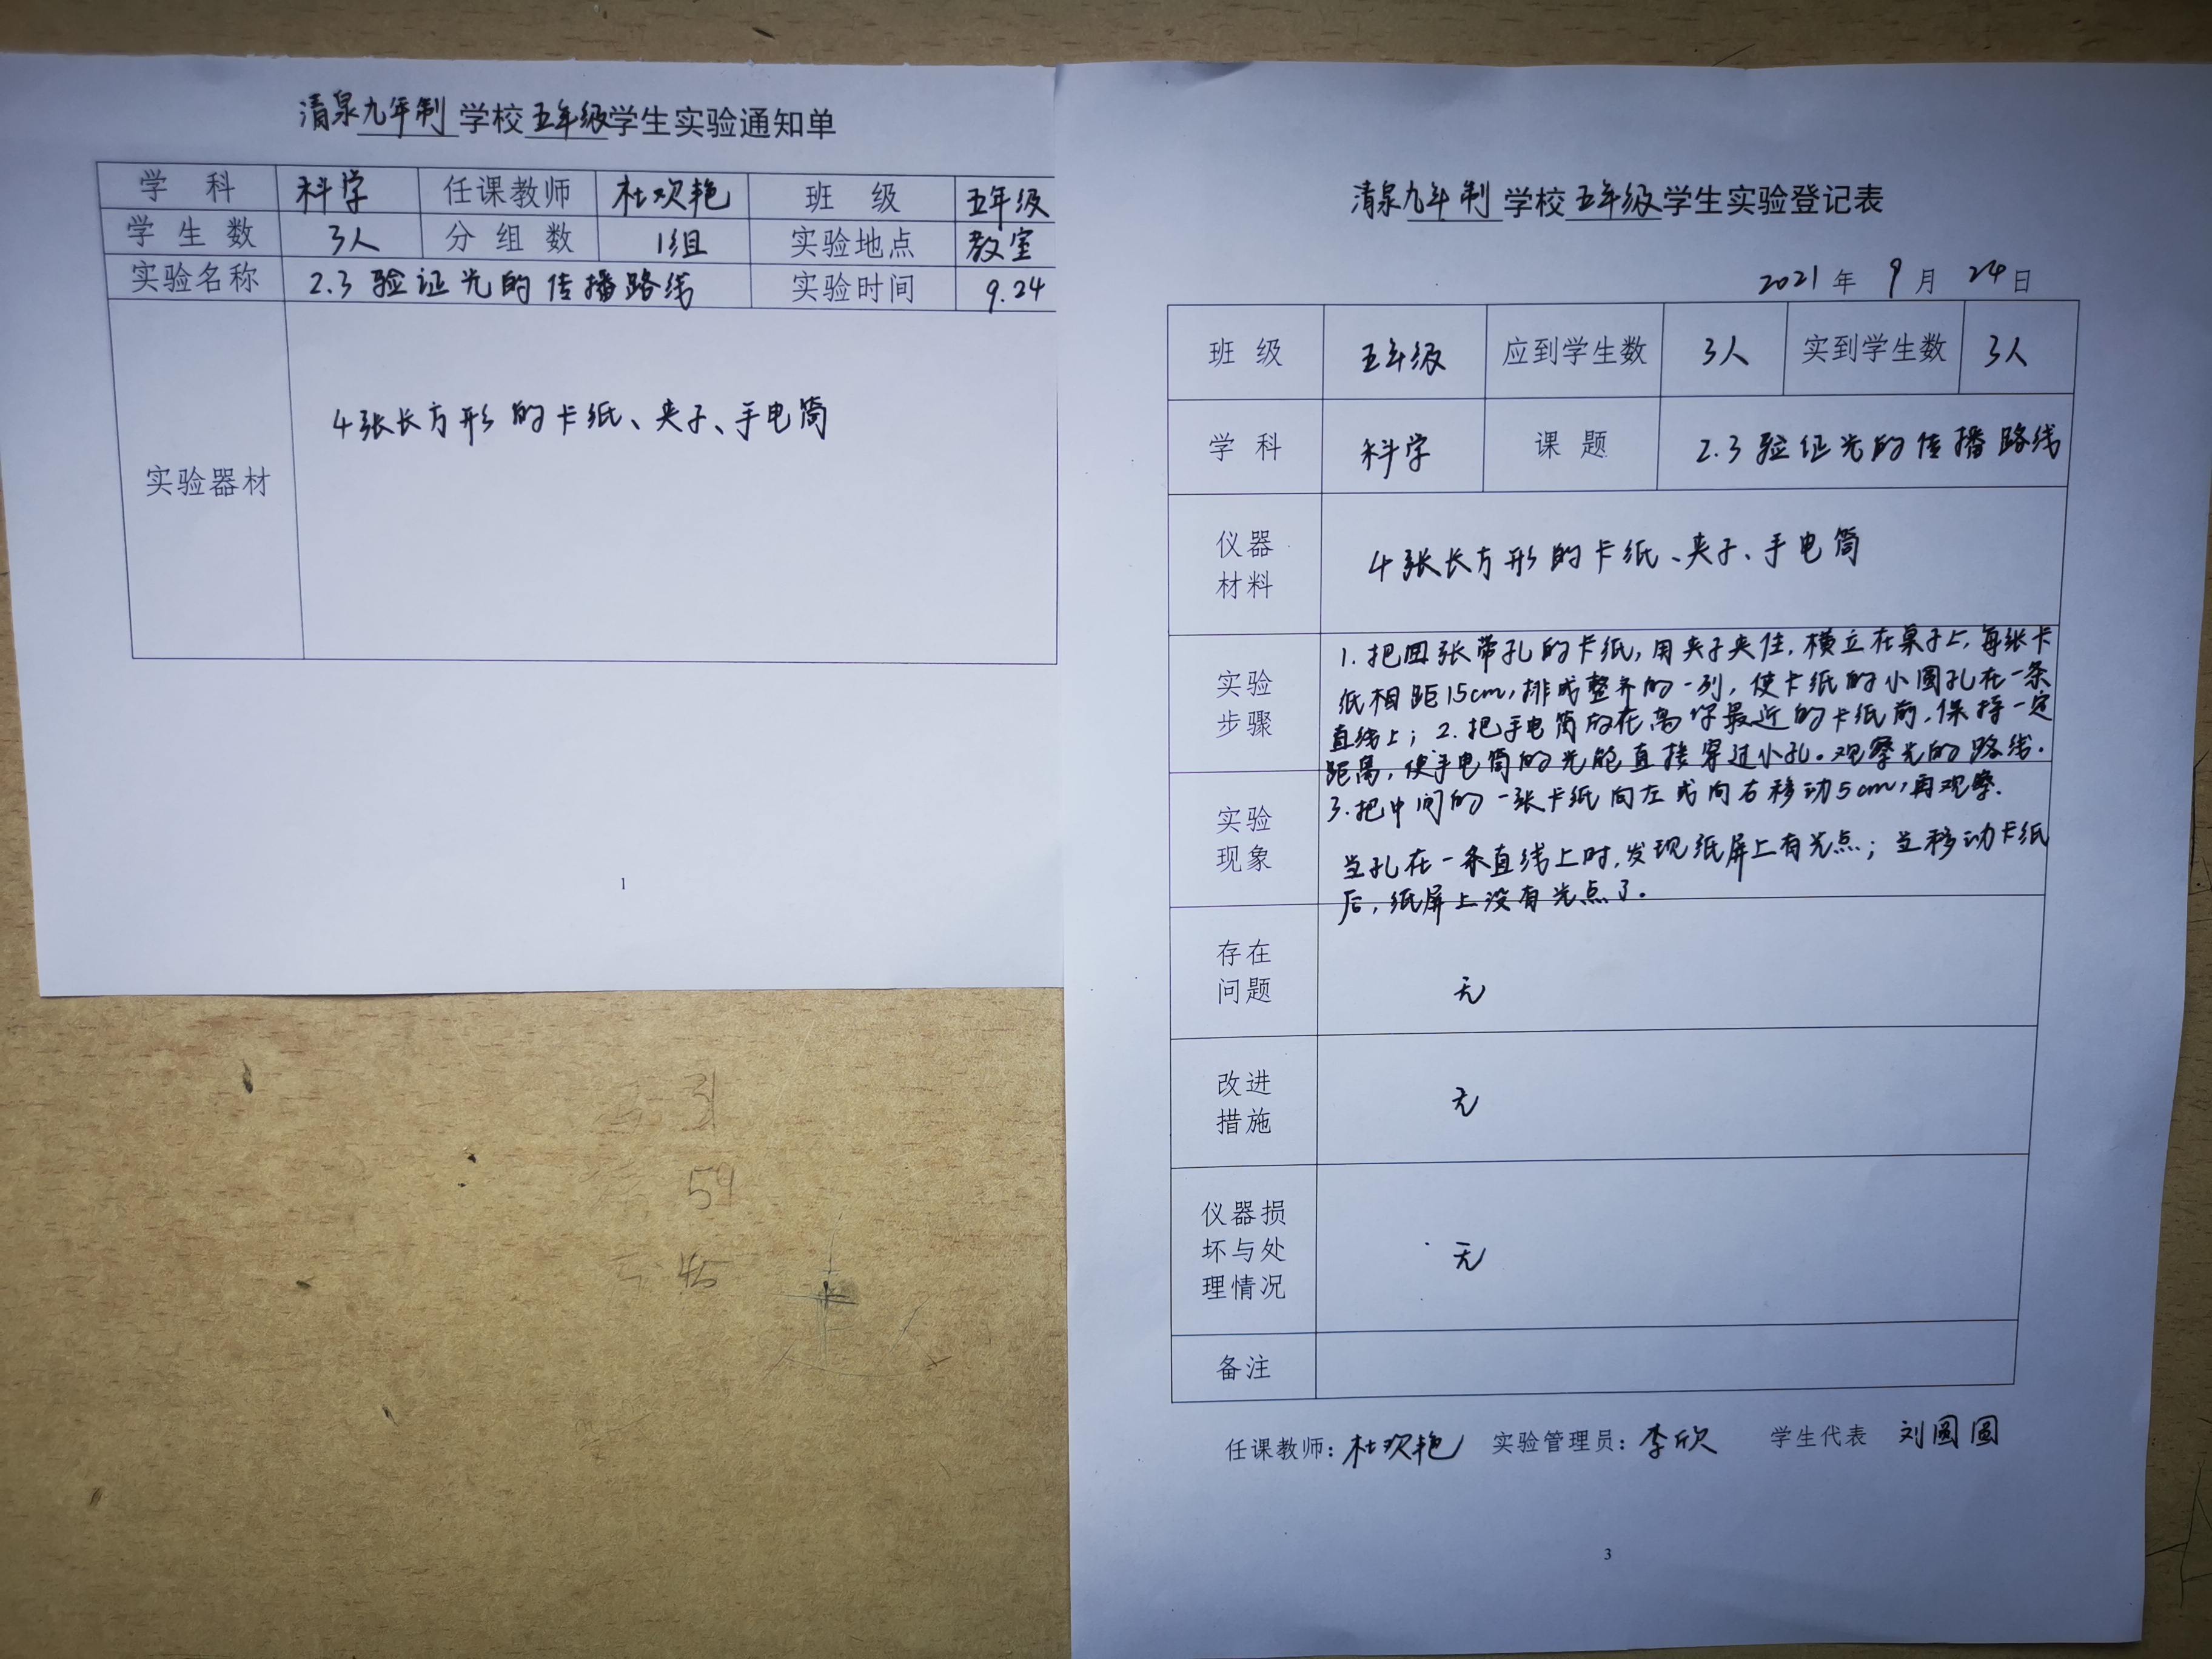 清泉九年制学校五年级学生实验通知单
学 科 科学 任课教师 杜欢艳 班 级 五年级
学 生 数 3人 分 组 数 1组 实验地点 教室
实验名称 2.3验证光的传播路线 实验时间 9.24
实验器材 4张长方形的卡纸、夹子、手电筒
1
清泉九年制学校五年级学生实验登记表
2021年9月24日
班 级 五年级 应到学生数 3人 实到学生数 3人
学 科 科学 课 题 2.3验证光的传播路线
仪器
材料
4张长方形的卡纸、夹子、手电筒
实验
步骤
1.把四张带孔的卡纸,用夹子夹住,横立在桌子上,每张卡
纸相距15cm,排成整齐的一列,使卡纸的小圆孔在一条
直线上;2.把手电筒放在离你最近的卡纸前,保持一定
距离,使手电筒的光能直接穿过小孔。观察光的路线.
3.把中间的一张卡纸向左或向右移动5cm,再观察.
实验
现象
当孔在一条直线上时,发现纸屏上有光点;当移动卡纸
后,纸屏上没有光点了.
存在
问题
无
改进
措施
无
仪器损
坏与处
理情况
无
备注
任课教师:杜欢艳 实验管理员:李欣 学生代表 刘圆圆
3
59
45